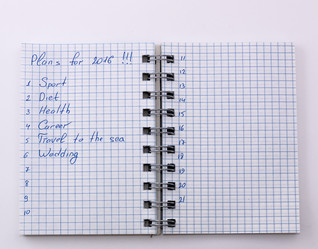 Plans for 2016 !!!
1 Sport
2 Diet
3 Health
4 Career
5 Travel to the sea
6 Wedding
7
8
9
10
11
12
13
14
15
16
17
18
19
20
21